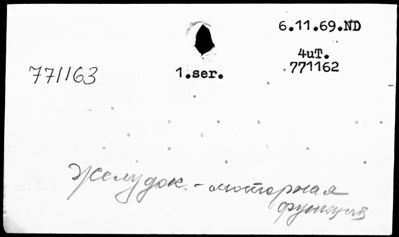 6.11.69.ND
4uT.
771163 1.ser. 771162
Желудок. - моторная
функция